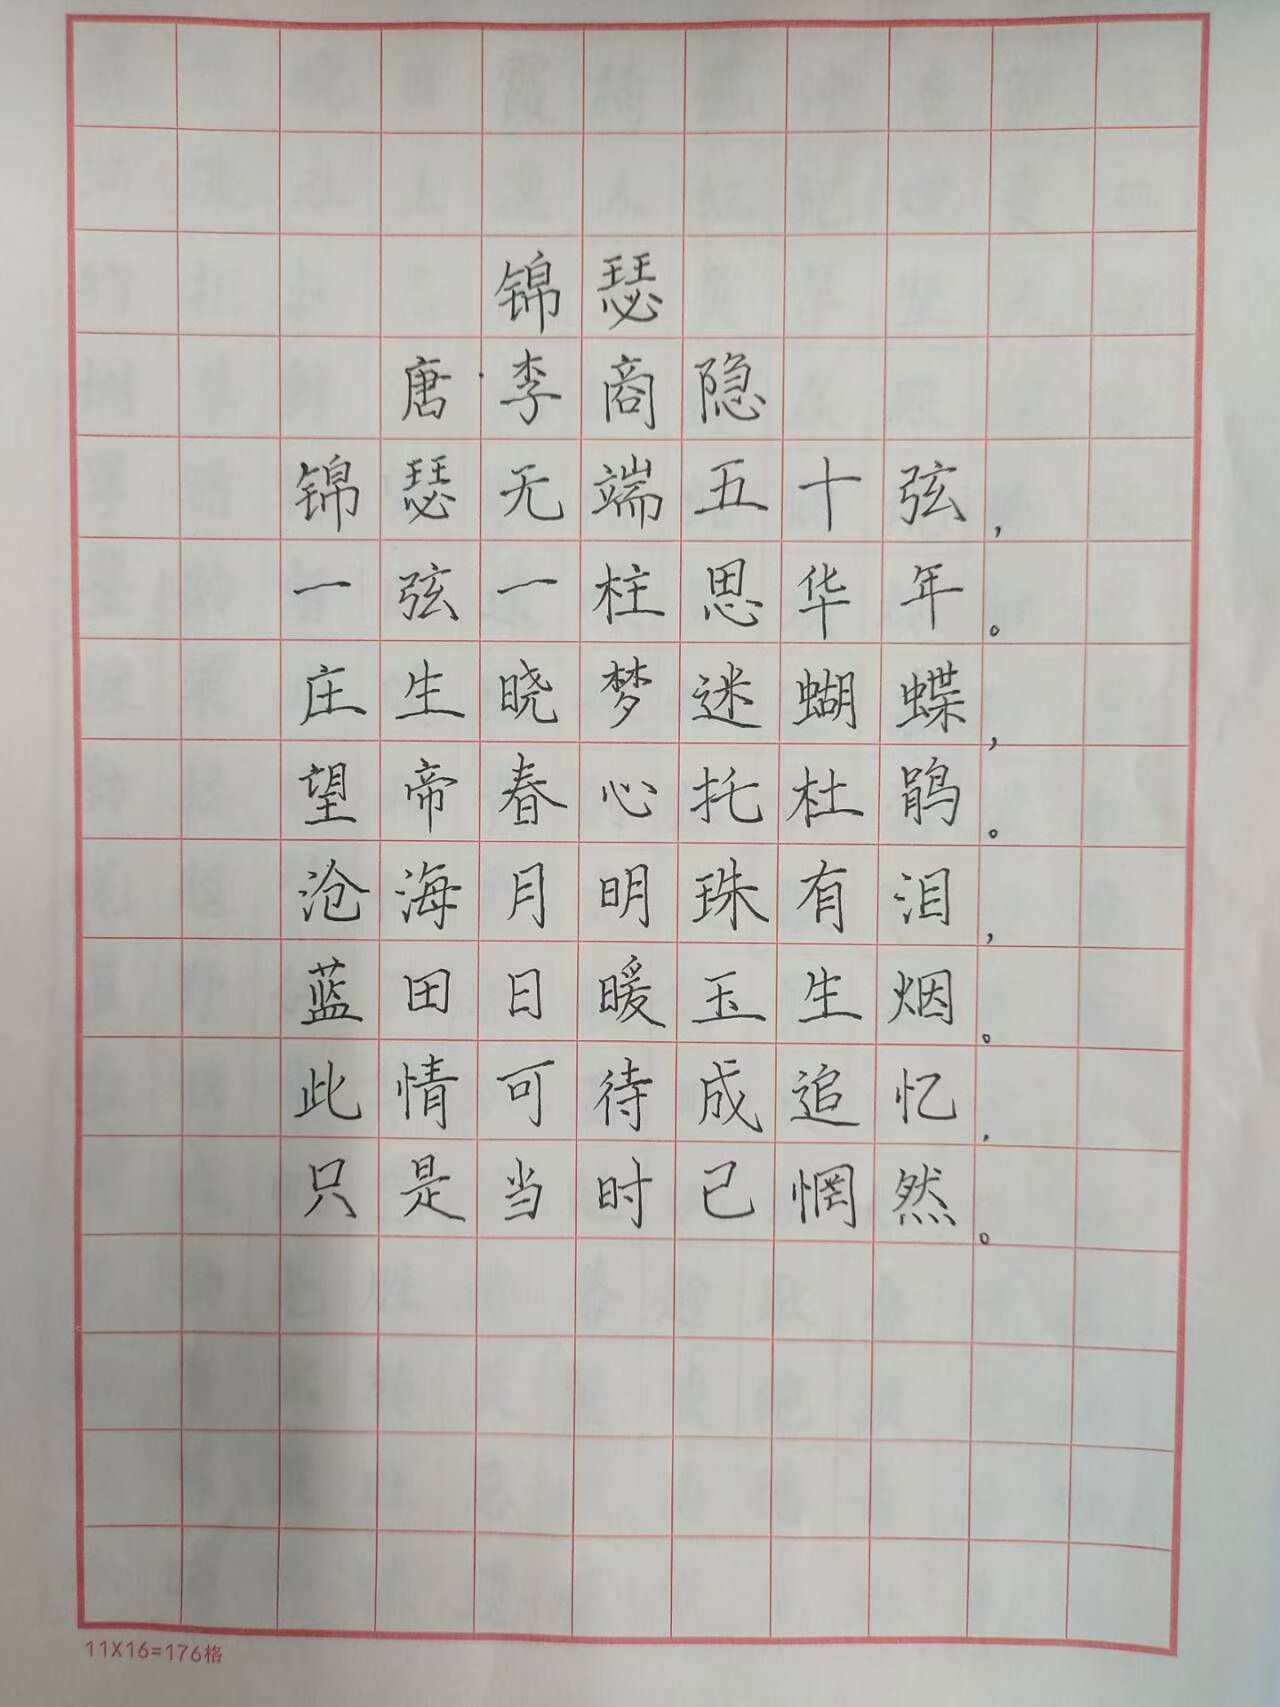 锦瑟
唐·李商隐
锦瑟无端五十弦，
一弦一柱思华年。
庄生晓梦迷蝴蝶，
望帝春心托杜鹃。
沧海月明珠有泪，
蓝田日暖玉生烟。
此情可待成追忆，
只是当时已惘然。
11X16=176格